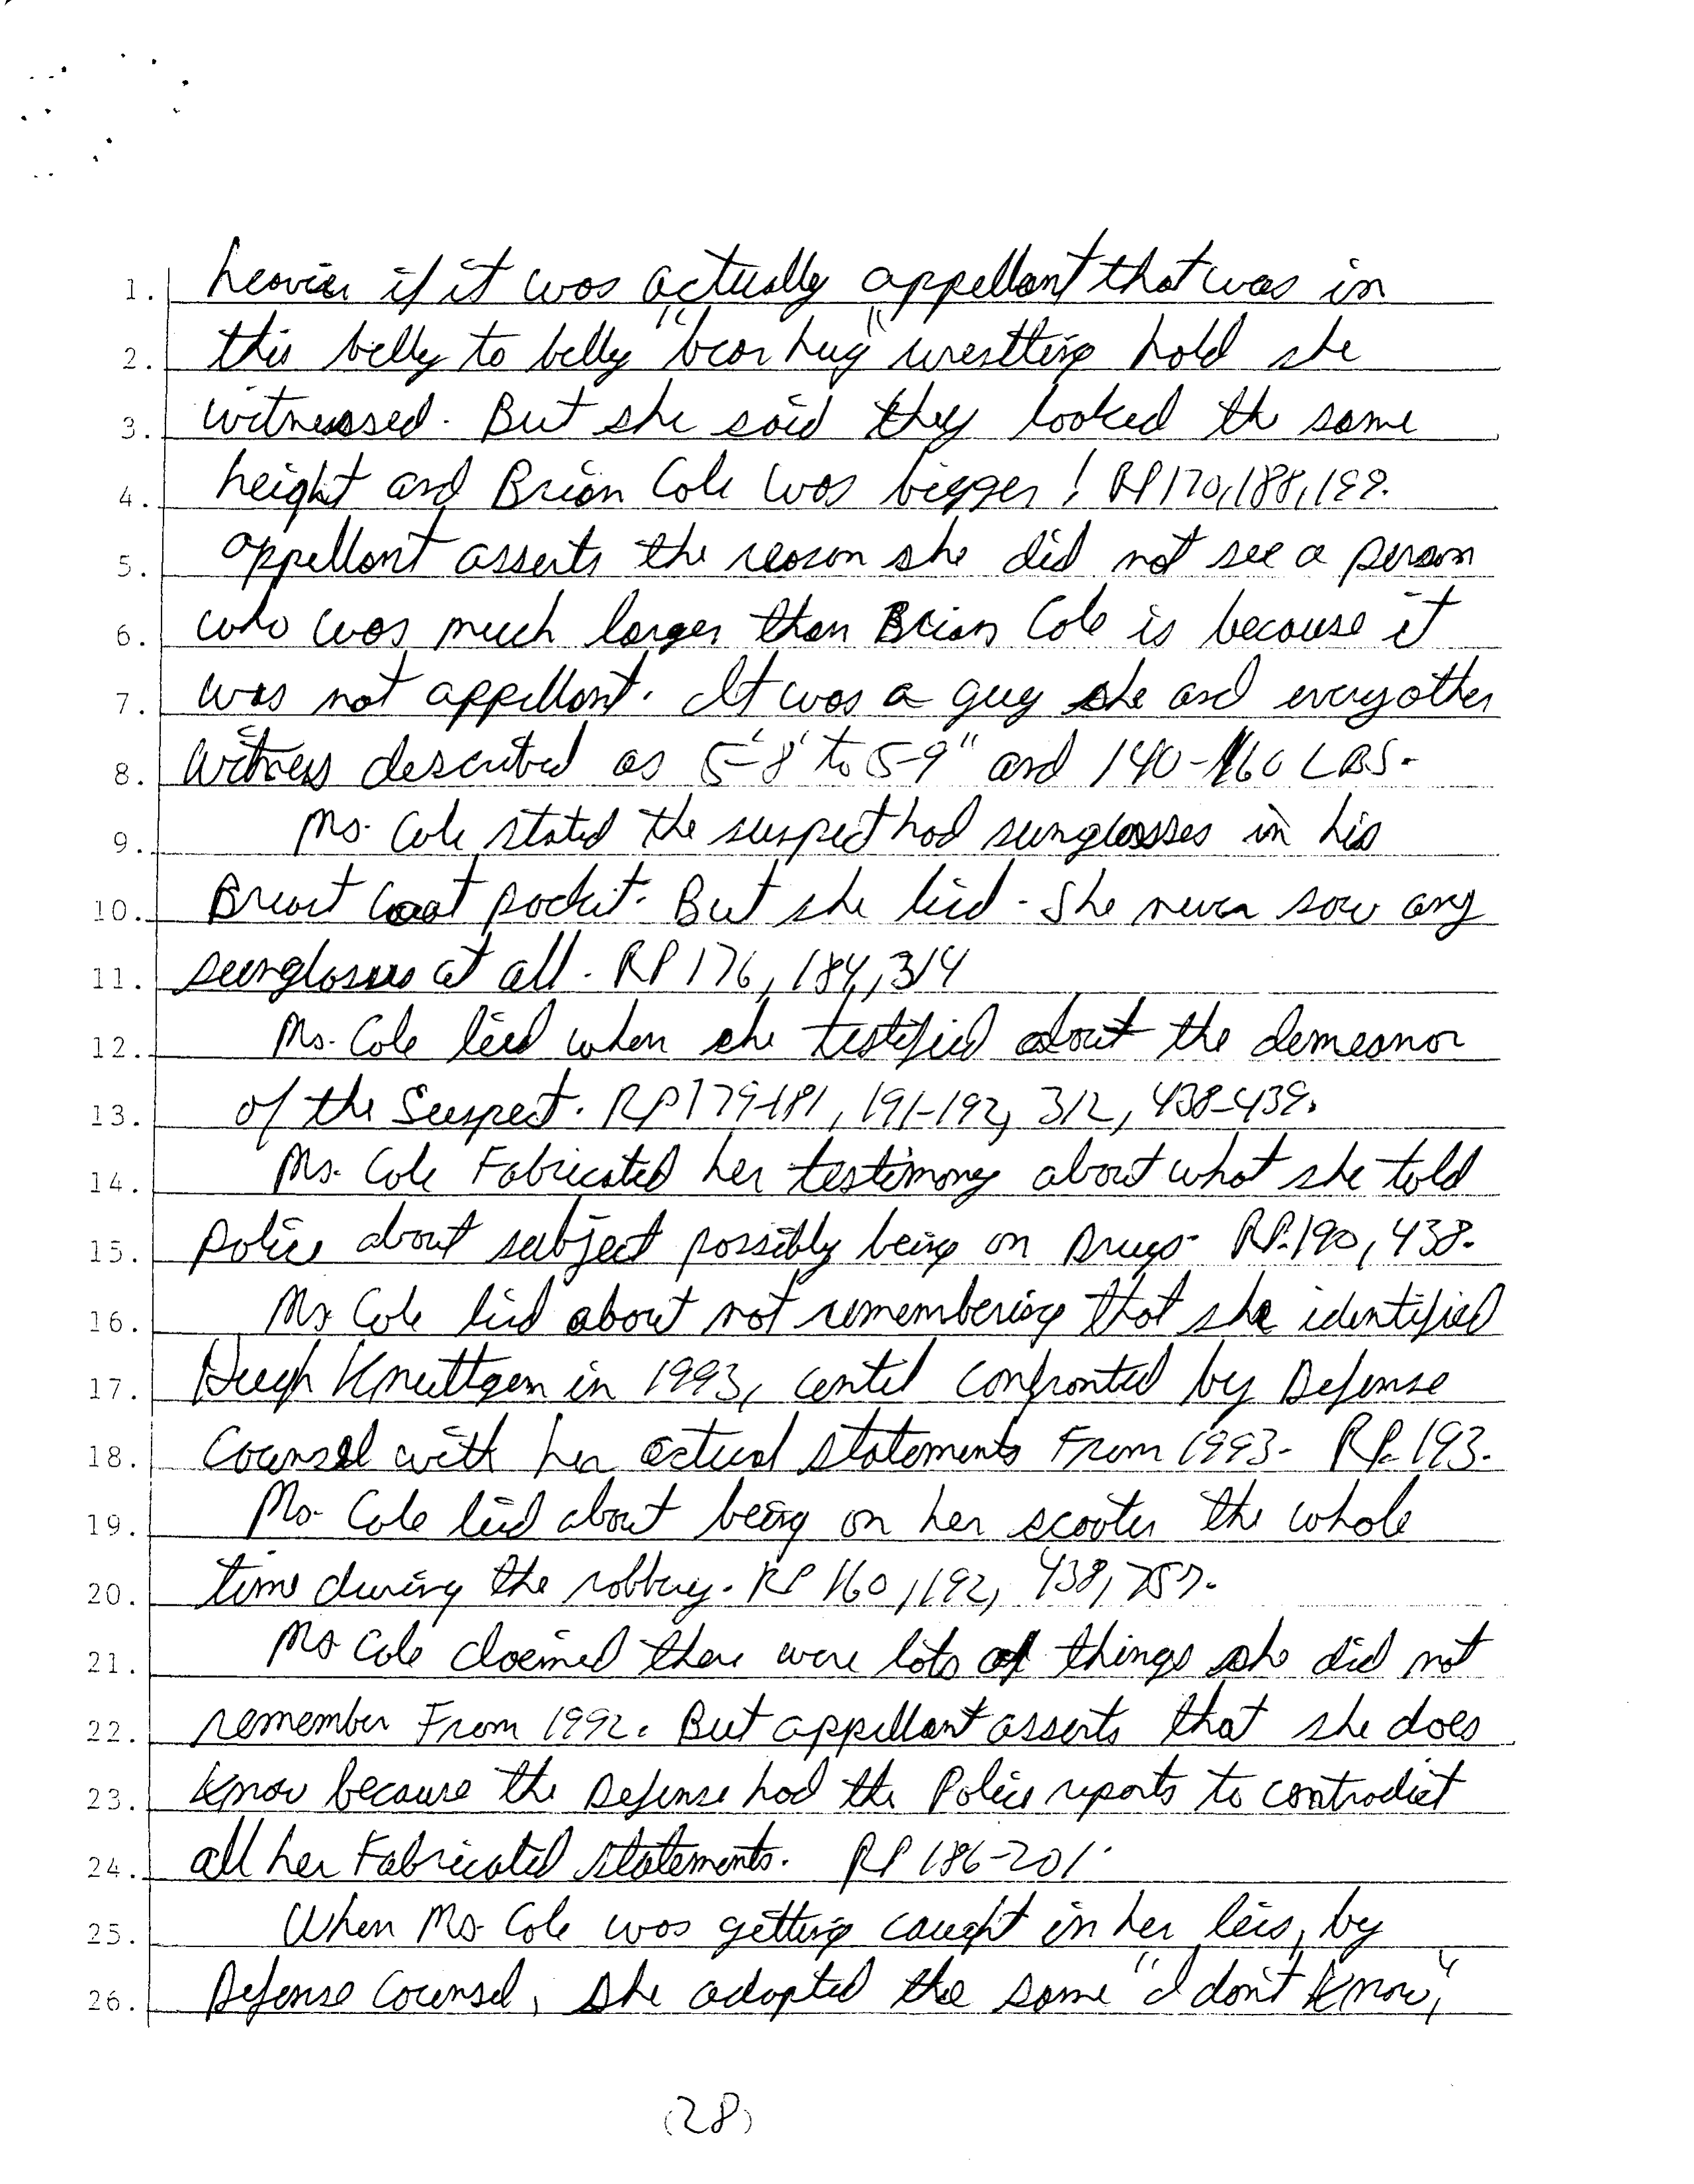 1. heavier if it was actually appellant that was in
2. this belly to belly "bear hug" wrestling hold she
3. witnessed. But she said they looked the same
4. height and Brian Cole was bigger! RP 170, 188, 199.
5. appellant asserts the reason she did not see a person
6. who was much larger than Brian Cole is because it
7. was not appellant. It was a guy she and every other
8. witness described as 5'-8' to 5-9" and 140-160 LBS.
9. Ms. Cole stated the suspect had sunglasses in his
10. Breast Coat pocket. But she lied. She never saw any
11. sunglasses at all. RP 176, 184, 314
12. Ms. Cole lied when she testified about the demeanor
13. of the Suspect. RP 179-181, 191-192, 312, 438-439.
14. Ms. Cole Fabricated her testimony about what she told
15. police about subject possibly being on Drugs. RP. 190, 438.
16. Ms Cole lied about not remembering that she identified
17. Hugh Knuttgen in 1993, until confronted by Defense
18. Counsel with her actual statements From 1993. RP. 193.
19. Ms. Cole lied about being on her scooter the whole
20. time during the robbery. RP 160, 192, 438, 757.
21. Ms Cole claimed there were lots of things she did not
22. remember From 1992. But appellant asserts that she does
23. Know because the Defense had the Police reports to contradict
24. all her Fabricated statements. RP 186-201.
25. When Ms Cole was getting caught in her leis, by
26. Defense Counsel, she adopted the same "I don't Know,"
(28)